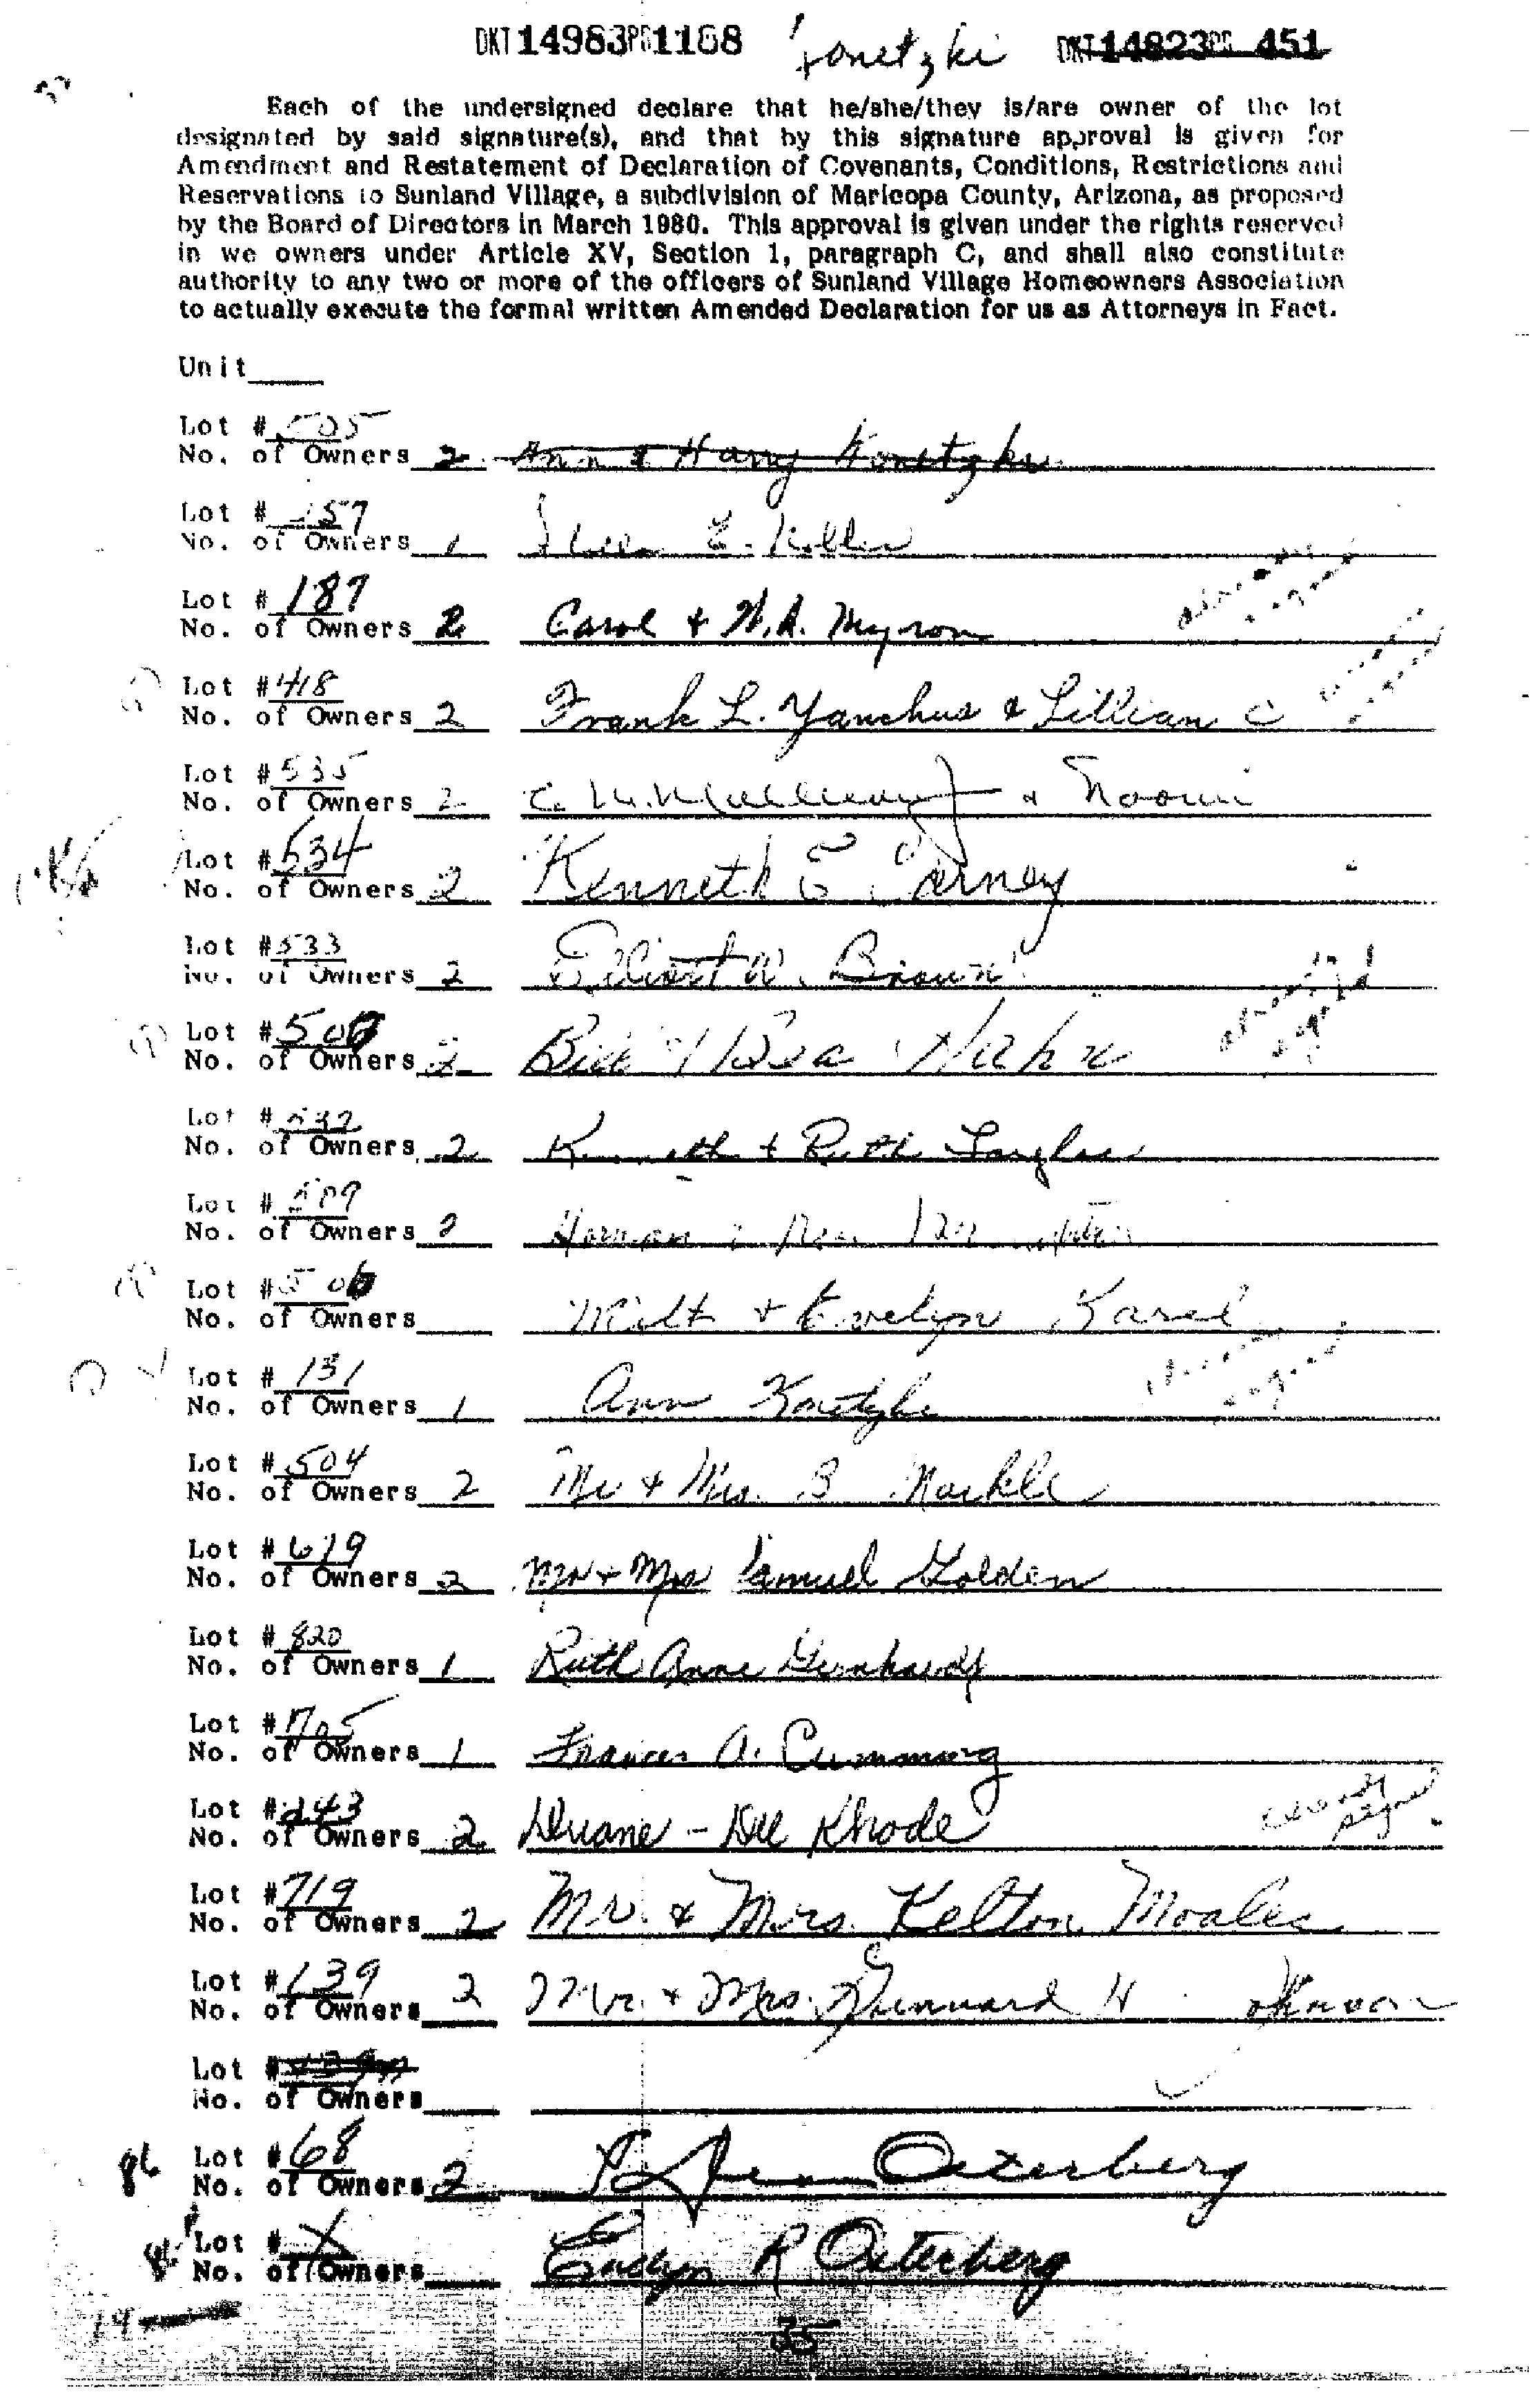 DKT 14983 PG 1168 Konetzki DKT 14823 PG 451
Each of the undersigned declare that he/she/they is/are owner of the lot
designated by said signature(s), and that by this signature approval is given for
Amendment and Restatement of Declaration of Covenants, Conditions, Restrictions and
Reservations to Sunland Village, a subdivision of Maricopa County, Arizona, as proposed
by the Board of Directors in March 1980. This approval is given under the rights reserved
in we owners under Article XV, Section 1, paragraph C, and shall also constitute
authority to any two or more of the officers of Sunland Village Homeowners Association
to actually execute the formal written Amended Declaration for us as Attorneys in Fact.
Unit
Lot # 505
No. of Owners 2 Ann & Harry Konetzki
Lot # 157
No. of Owners 1 E. Koller
Lot # 187
No. of Owners 2 Carol + W.A. Myron already signed
Lot # 418
No. of Owners 2 Frank L. Yanchus & Lillian C
Lot # 535
No. of Owners 2 & Naomi
Lot # 534
No. of Owners 2 Kenneth E Carney
Lot # 533
No. of Owners 2 Brown already signed
Lot # 506
No. of Owners 2 Bill & Bea
Lot # 532
No. of Owners 2 Kenneth + Ruth
Lot # 509
No. of Owners 2 Herman
Lot # 506
No. of Owners Milt + Evelyn Karel
Lot # 131
No. of Owners 1 Ann Konetzki
Lot # 504
No. of Owners 2 Mr + Mrs. B Markle
Lot # 619
No. of Owners 2 Mr + Mrs Samuel Golden
Lot # 820
No. of Owners 1 Ruth Anne Gernhardt
Lot # 705
No. of Owners 1 Frances A. Cumming
Lot # 243
No. of Owners 2 Duane - Dee Rhode
Lot # 719
No. of Owners 2 Mr. & Mrs. Kelton Moales
Lot # 139
No. of Owners 2 Mr. + Mrs. H Johnson
Lot #
No. of Owners
86 Lot # 68
No. of Owners 2 Osterberg
Lot #
No. of Owners Evelyn R Osterberg
35